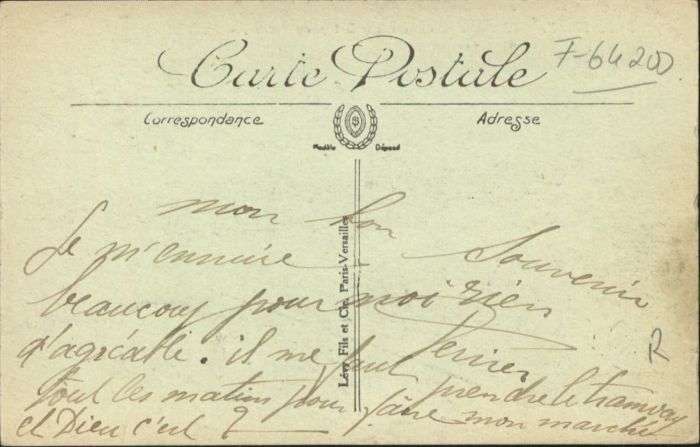 Carte Postale
F-64200
Correspondance
Adresse
Modèle Déposé
Lévy Fils et Cie, Paris-Versailles
mon bon Souvenir
Je m'ennuie
beaucoup pour moi rien
d'agréable. il me faut
prendre le tramway
tout les matins pour faire mon marché
et Dieu c'est ?
R